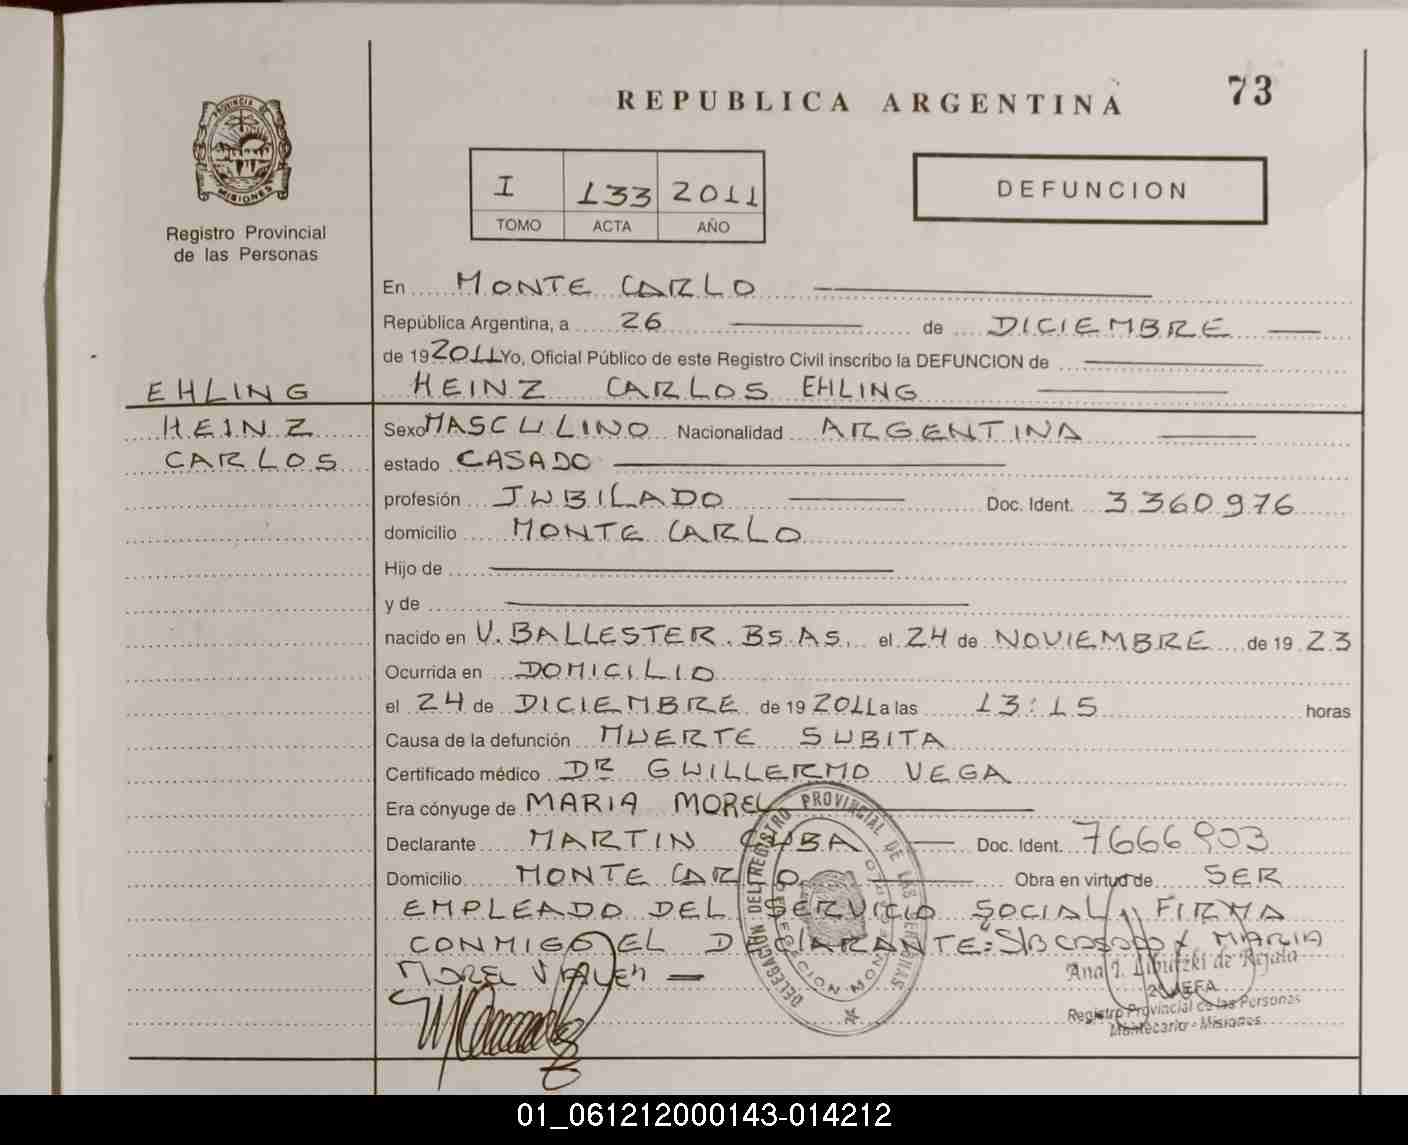 73
REPUBLICA ARGENTINA
PROVINCIA DE
MISIONES
Registro Provincial
de las Personas
I 133 2011
TOMO ACTA AÑO
DEFUNCION
En MONTE CARLO
República Argentina, a 26 de DICIEMBRE
de 19 2011 Yo, Oficial Público de este Registro Civil inscribo la DEFUNCION de
EHLING
HEINZ
CARLOS
HEINZ CARLOS EHLING
Sexo MASCULINO Nacionalidad ARGENTINA
estado CASADO
profesión JUBILADO Doc. Ident. 3360976
domicilio MONTE CARLO
Hijo de
y de
nacido en V. BALLESTER. BS. AS. el 24 de NOVIEMBRE de 19 23
Ocurrida en DOMICILIO
el 24 de DICIEMBRE de 19 2011 a las 13:15 horas
Causa de la defunción MUERTE SUBITA
Certificado médico DR GUILLERMO VEGA
Era cónyuge de MARIA MOREL
Declarante MARTIN Doc. Ident. 7666903
Domicilio MONTE CARLO Obra en virtud de SER
EMPLEADO DEL SERVICIO SOCIAL FIRMA
CONMIGO EL DECLARANTE: S/B CASADO MARIA
MOREL VALE"
DELEGACION DEL REGISTRO PROVINCIAL DE LAS PERSONAS
Ana I. de
2ª JEFA
Registro Provincial de las Personas
Montecarlo - Misiones
01_061212000143-014212